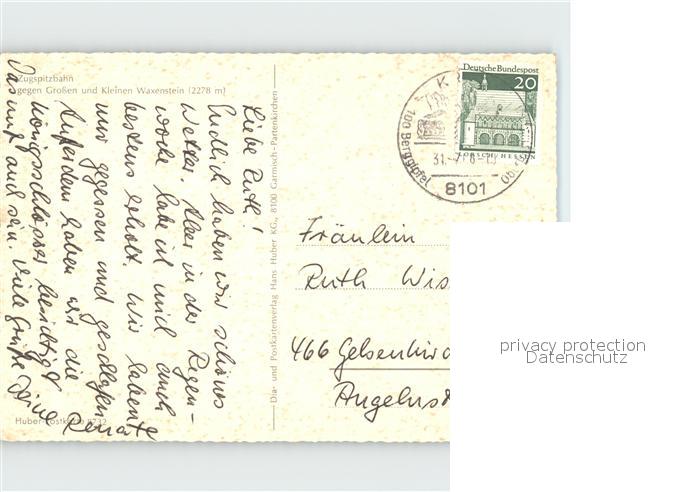 Zugspitzbahn
gegen Großen und Kleinen Waxenstein (2278 m)
Liebe Ruth!
Endlich haben wir schönes
Wetter. Aber in der Regen-
woche habe ich mich auch
bestens erholt. Wir haben
nur gegessen und geschlafen.
Außerdem haben wir die
Königsschlösser besichtigt.
Das muß auch sein. Viele Grüße Deine
Renate
Huber-Postkarte 8232
Dia- und Postkartenverlag Hans Huber KG., 8100 Garmisch-Partenkirchen
Deutsche Bundespost
20
LORSCH/HESSEN
100 Berggipfel
31.-7.
8101
Fräulein
Ruth Wis
466 Gelsenkirc
Angelusst
privacy protection
Datenschutz